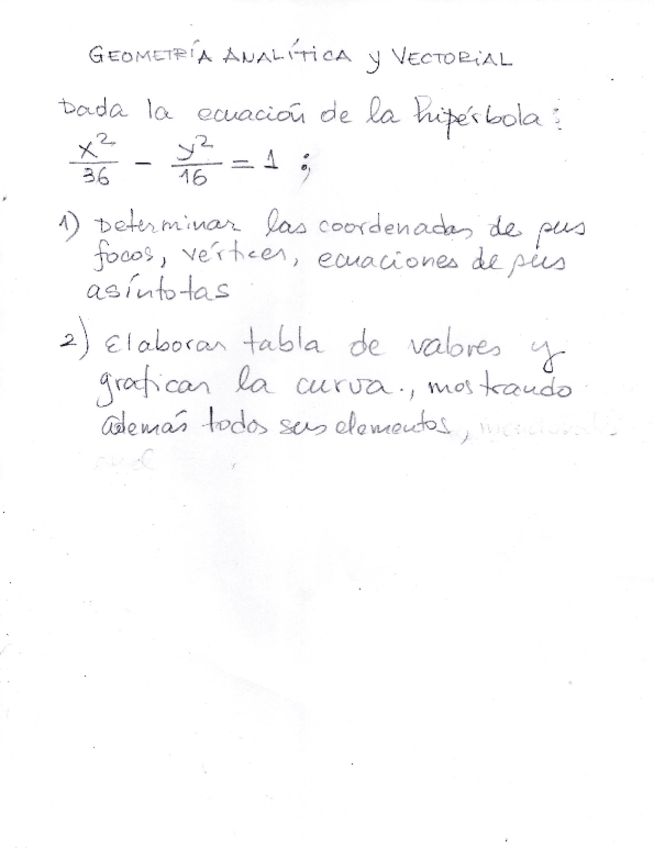 GEOMETRÍA ANALÍTICA y VECTORIAL
Dada la ecuación de la hipérbola:
x²/36 - y²/16 = 1 ;
1) Determinar las coordenadas de sus
focos, vértices, ecuaciones de sus
asíntotas
2) Elaborar tabla de valores y
graficar la curva., mostrando
además todos sus elementos,